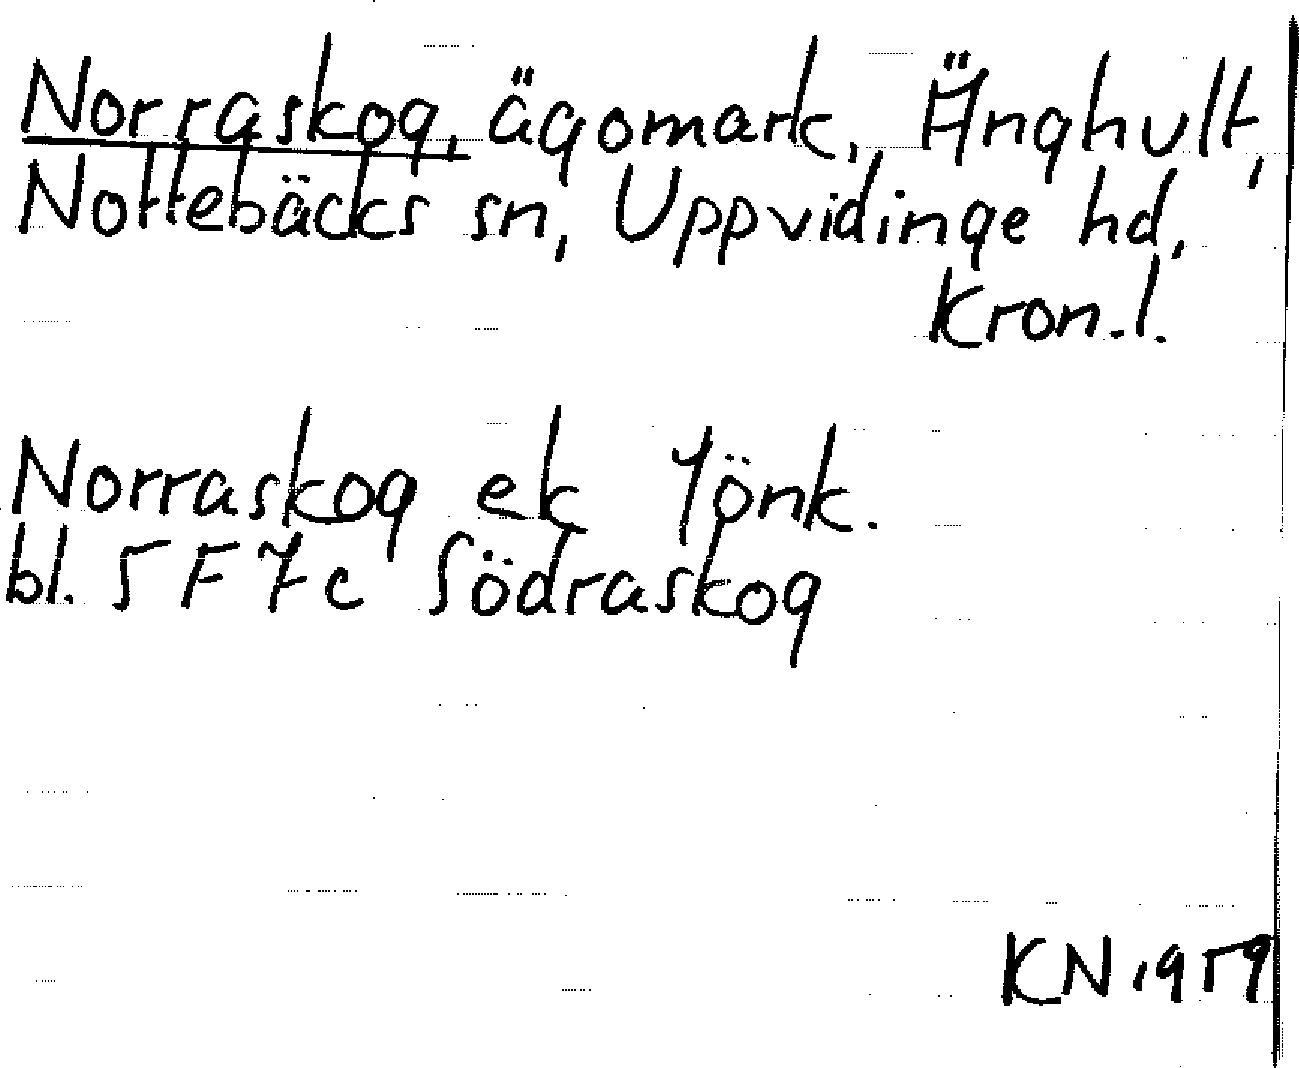 Norraskog, ägomark, Änghult,
Nottebäcks sn, Uppvidinge hd,
Kron. l.
Norraskog ek Jönk.
bl. 5 F 7 c Södraskog
KN 1959